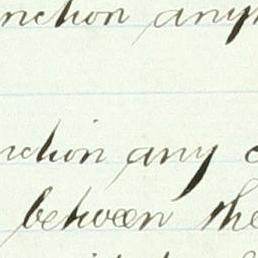 nction any
nction any c
between the